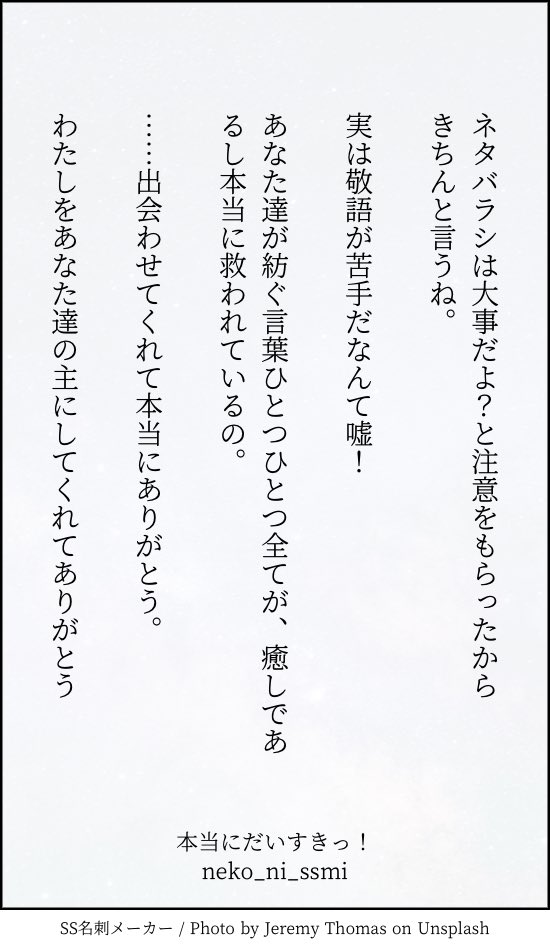 ネタバラシは大事だよ？と注意をもらったから
きちんと言うね。
実は敬語が苦手だなんて嘘！
あなた達が紡ぐ言葉ひとつひとつ全てが、癒しであ
るし本当に救われているの。
……出会わせてくれて本当にありがとう。
わたしをあなた達の主にしてくれてありがとう
本当にだいすきっ！
neko_ni_ssmi
SS名刺メーカー / Photo by Jeremy Thomas on Unsplash